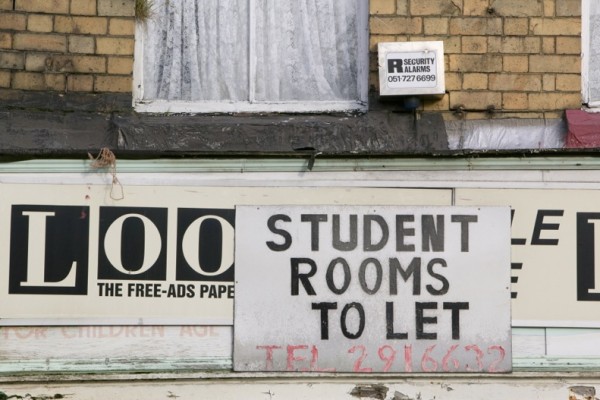 R SECURITY
ALARMS
051-727 6699
LOO
THE FREE-ADS PAPE
STUDENT
ROOMS
TO LET
TEL 2916632
LE
E
FOR CHILDREN AGE